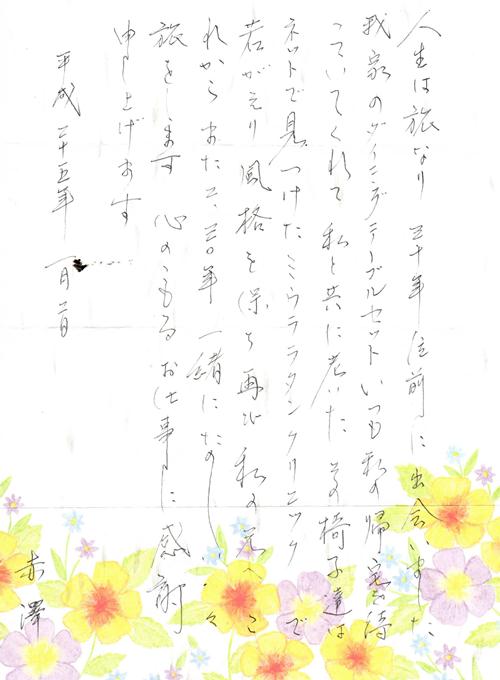 人生は旅なり 三十年位前に出会いました
我家のダイニングテーブルセット いつも私の帰宅を待
っていてくれて 私と共に老いた その椅子達は
ネットで見つけたミウラララタンクリニックで
若がえり 風格を保ち再び私の元へ こ
れから また二、三〇年 一緒にたのしい
旅をします 心のこもるお仕事に感謝
申し上げます
平成二十五年 一月二日
赤澤